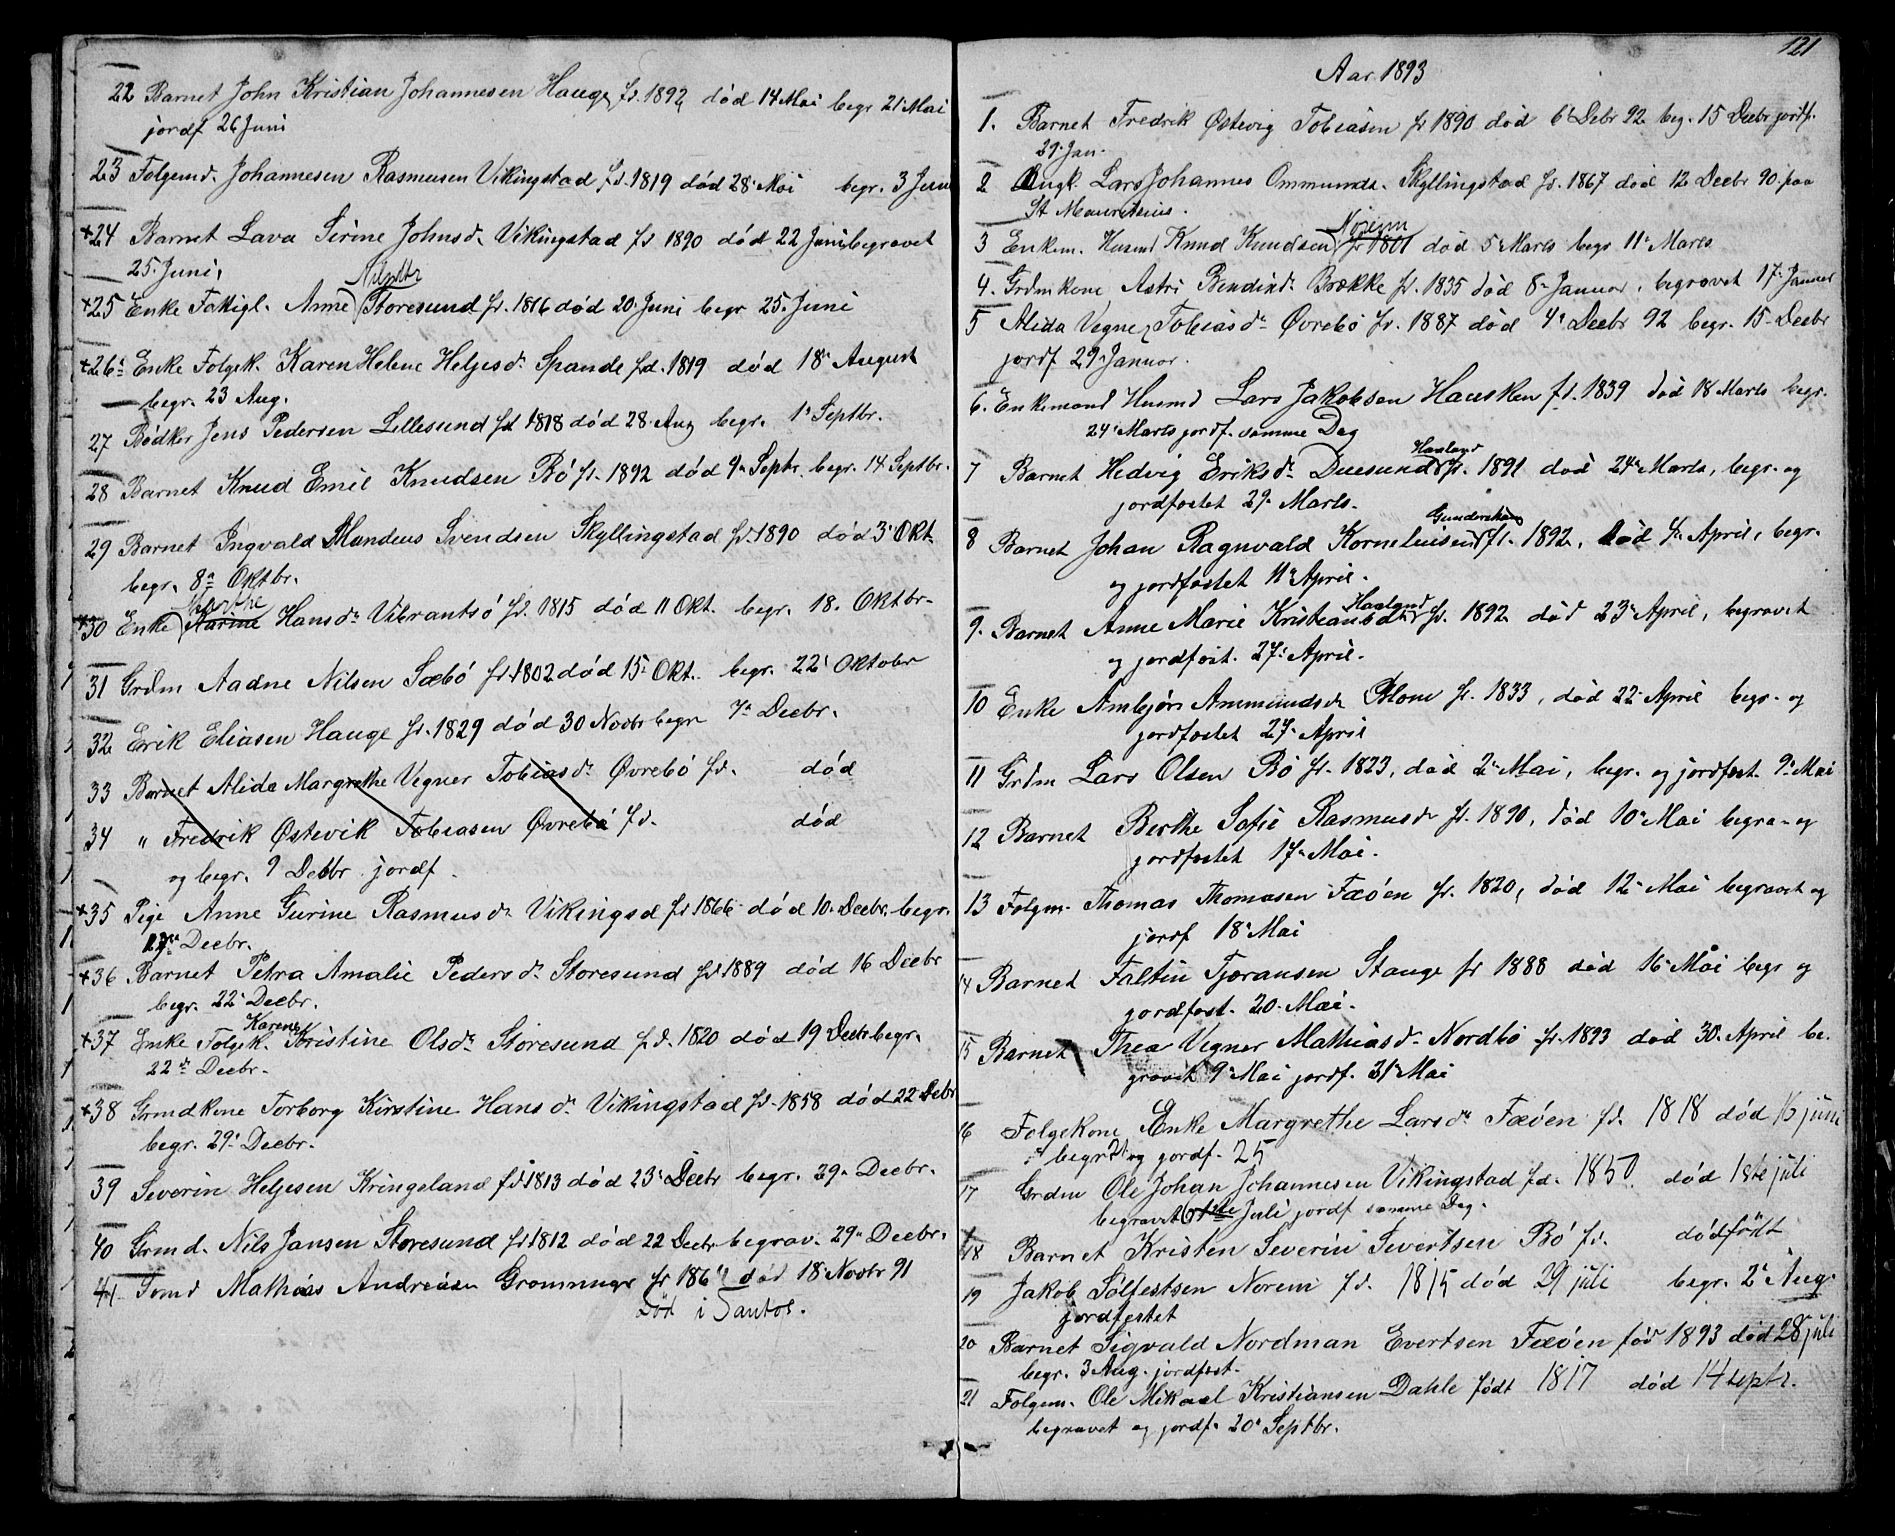 22 Barnet John Kristian Johannesen Hauge fd. 1892 död 14 Mai begr 21 Mai
jordf 26 Juni
23 Folgemd. Johannesen Rasmusen Vikingstad fd. 1819 död 28 Mai begr. 3 Juni
+24 Barnet Lava Sirine Johnsd. Vikingstad fd 1890 död 22 Juni begravet
25. Juni,
+25 Enke Fattigl. Anne Storesund fr. 1816 död 20 Juni begr 25. Juni
+26 Enke Folgek. Karen Helene Helgesd. Spande fd. 1819 död 18 August
begr. 23 Aug.
27 Bödker Jens Pedersen Lillesund fd 1818 död 28. Aug begr. 1 Septbr.
28 Barnet Knud Emil Knudsen Bö fd. 1892 död 9 Septr. begr. 14 Septbr.
29 Barnet Ingvald Mandeus Svendsen Skyllingstad fd. 1890 död 3 Okt
begr. 8 Oktbr.
Marthe
+30 Enke Karine Hansd. Vibrantsö fd. 1815 död 11 Okt. begr. 18. Oktbr.
31 Grdm Aadne Nilsen Sæbö fr. 1802 död 15 Okt. begr. 22 Oktober
32 Erik Eliasen Hauge fr. 1829 död 30 Novbr begr 7 Decbr.
33 Barnet Alida Margrethe Vegner Tobiasd. Övrebö fd. död
34 " Fredrik Östevik Tobiasen Övrebö fd. död
og begr. 9 Decbr. jordf.
+35 Pige Anne Gurine Rasmusd. Vikingsd fd 1866 död 10. Decbr. begr.
17 Decbr.
+36 Barnet Petra Amalie Pedersd. Storesund fd. 1889 död 16 Decbr
begr. 22 Decbr.
Karene
+37 Enke Folgek. Kristine Olsd. Storesund fd. 1820 död 19 Decbr begr.
22 Decbr.
+38 Grmdkone Torborg Kirstine Hansd. Vikingstad fd. 1858 död 22 Decbr
begr. 29 Decbr.
39 Severin Helgesen Kringeland fd. 1813 död 23 Decbr begr. 29 Decbr.
40 Grmd. Nils Jansen Storesund fd 1812 död 22 Decbr begrav. 29 Decbr.
41 Mathias Andreasen död 18 Novbr 91
Död i Santos.
121
Aar 1893
1. Barnet Fredrik Östevig Tobiasen fr 1890 död 6 Debr 92 beg. 15 Decbr jordf.
29. Jan.
2 Ungk. Lars Johannes Ommunds. Skyllingstad fr. 1867 död 12 Decbr 90 paa
St Mauritsius.
Norein
3 Enkem. Husmd Knud Knudsen fr 1801 död 5 Marts begr 11 Marts
4. Grdmkone Astri Bendixd. Brække fd. 1835 död 8 Januar, begravet 17 Januar
5 Alida Vegne Tobiasd. Övrebö fr. 1887 död 4 Decbr 92 begr. 15 Decbr
jordf 29 Januar.
6. Enkemand Husmd Lars Jakobsen Hausken fd. 1839 död 18 Marts begr.
24 Marts jordf. samme Dag
Haaland
7 Barnet Hedvig Eriksd. Duesund fr. 1891 död 24 Marts, begr. og
jordfæstet 29 Marts.
8 Barnet Johan Ragnvald Korneliusen fr. 1892, död 4 April, begr.
og jordfæstet 11 April.
Haaland
9. Barnet Anne Marie Kristiansd. fd. 1892 död 23 April, begravet
og jordfæst. 27 April.
10 Enke Ambjör Ammundsd Blom fr. 1833, död 22 April begr. og
jordfæstet 27 April
11 Grdm Lars Olsen Bö fr. 1823, död 2 Mai, begr. og jordfæst. 9 Mai
12 Barnet Berthe Sofie Rasmusd. fr. 1890, död 10 Mai begra. og
jordfæstet 17 Mai.
13 Folgm. Thomas Thomasen Fæöen fr. 1820, död 12 Mai begravet og
jordf 18 Mai
14 Barnet Faltin Tjöransen Stange fr 1888 död 16 Mai begr og
jordfæst. 20. Mai.
15 Barnet Thea Vegner Mathiasd. Nordbö fr. 1893 död 30. April be-
gravet 9 Mai jordf. 31 Mai
16 Folgekone Enke Margrethe Larsd. Fæöen fd. 1818 död 16 juni
begr 21 og jordf. 25
17 Grdm Ole Johan Johannesen Vikingstad fd. 1850 död 1ste juli
begravet Juli jordf samme Dag.
18 Barnet Kristen Severin Severtsen Bö fd. dödfödt
19 Jakob Solfestsen Norem fd. 1815 död 29 juli begr. 2 Aug.
jordfæstet
20 Barnet Sigvald Nordman Evertsen Fæöen född 1893 död 28 juli
begr. 3 Aug. jordfæst.
21 Folgem. Ole Mikael Kristiansen Dahle född 1817 död 14 septr.
begravet og jordf. 20 Septbr.